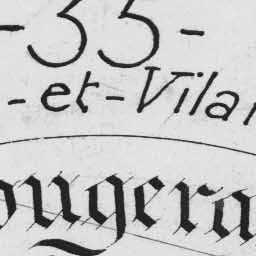 -35-
-et-Vilai
ougera